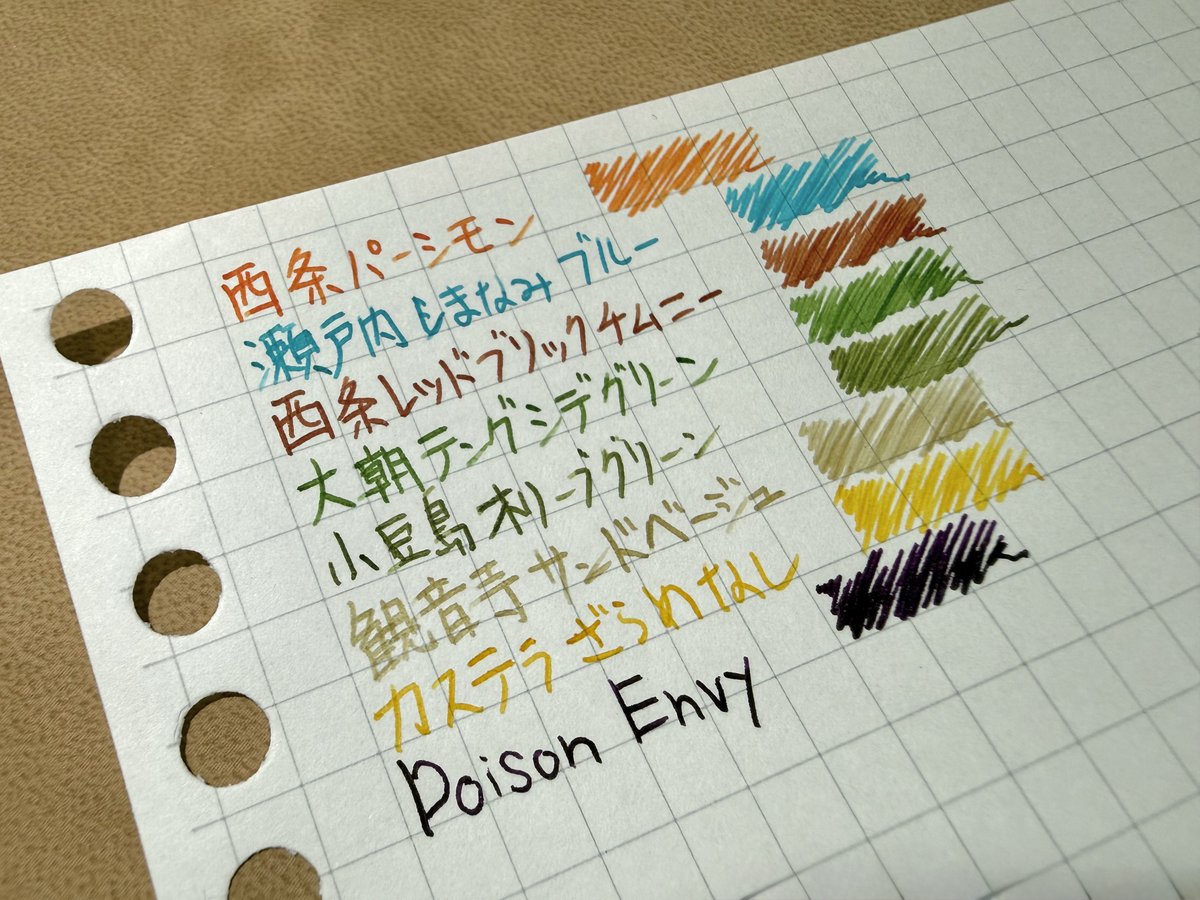 西条パーシモン
瀬戸内しまなみブルー
西条レッドブリックチムニー
大朝テングシデグリーン
小豆島オリーブグリーン
観音寺サンドベージュ
カステラざらめなし
Poison Envy